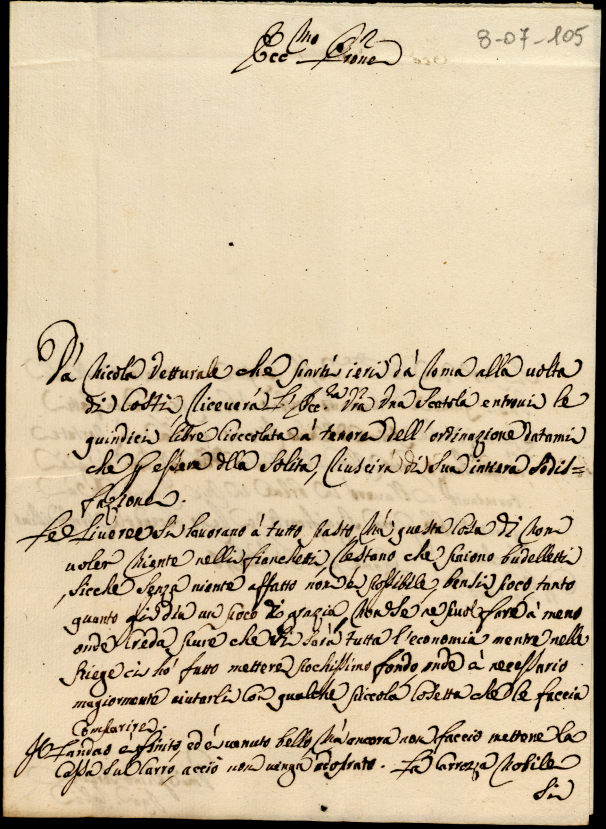 8-07-105
Ecc.mo Sig.r Prone
Da Nicola Vetturale che partì ieri dà Roma alla volta
di Costì riceverà l'Ecc.za Vra una Scatola entrovi le
quindici libre Cioccolata à tenore dell'ordinazione datami
che p essere della Solita, riuscirà di Sua intiera Sodis=
fazione.
Le Livree si lavorano à tutto pasto Mà questa cosa di non
voler niente nelli fianchetti restano che paiono budelletti
sicche senza niente affatto non è possibile, bensì poco tanto
quanto gli dia un poco di grazia non se ne puol fare à meno
onde creda pure che vi sarà tutta l'economia mentre nelle
Riege ci hò fatto mettere pochissimo fondo onde è necessario
magiormente aiutarli con qualche piccola cosetta che le faccia
Comparire.
Il Landao è finito, ed è venuto bello Mà ancora non faccio mettere la
Cassa sul Carro acciò non venga adoprato. La Carrozza Nobile
Si